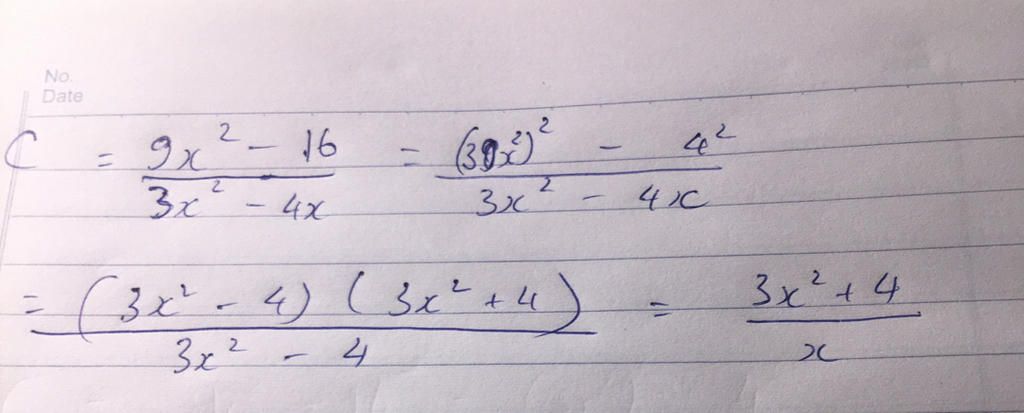 No.
Date
C = \frac{9x^2 - 16}{3x^2 - 4x} = \frac{(3x^2)^2 - 4^2}{3x^2 - 4x}
= \frac{(3x^2 - 4)(3x^2 + 4)}{3x^2 - 4} = \frac{3x^2 + 4}{x}